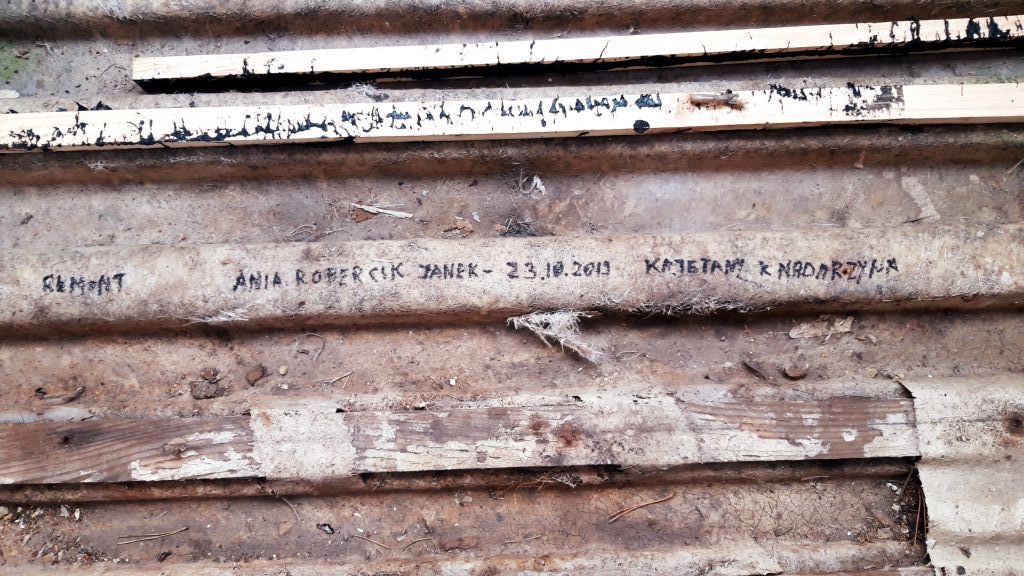 REMONT ANIA ROBERCIK JANEK - 23.10.2019 KAJETANY K NADARZYNA